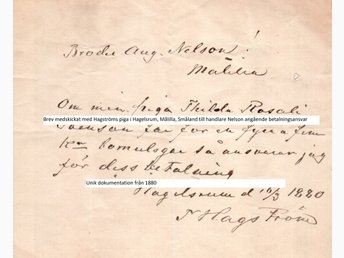 Broder Aug. Nelson!
Målilla
Om min piga Thilda Rosali
Brev medskickat med Hagströms piga i Hagelsrum, Målilla, Småland till handlare Nelson angående betalningsansvar
Svenson för en fyra a fem
Kr bomulsgar så ansvarar jag
för dess betalning
Unik dokumentation från 1880
Hagelsrum d 10/3 1880
Hagström